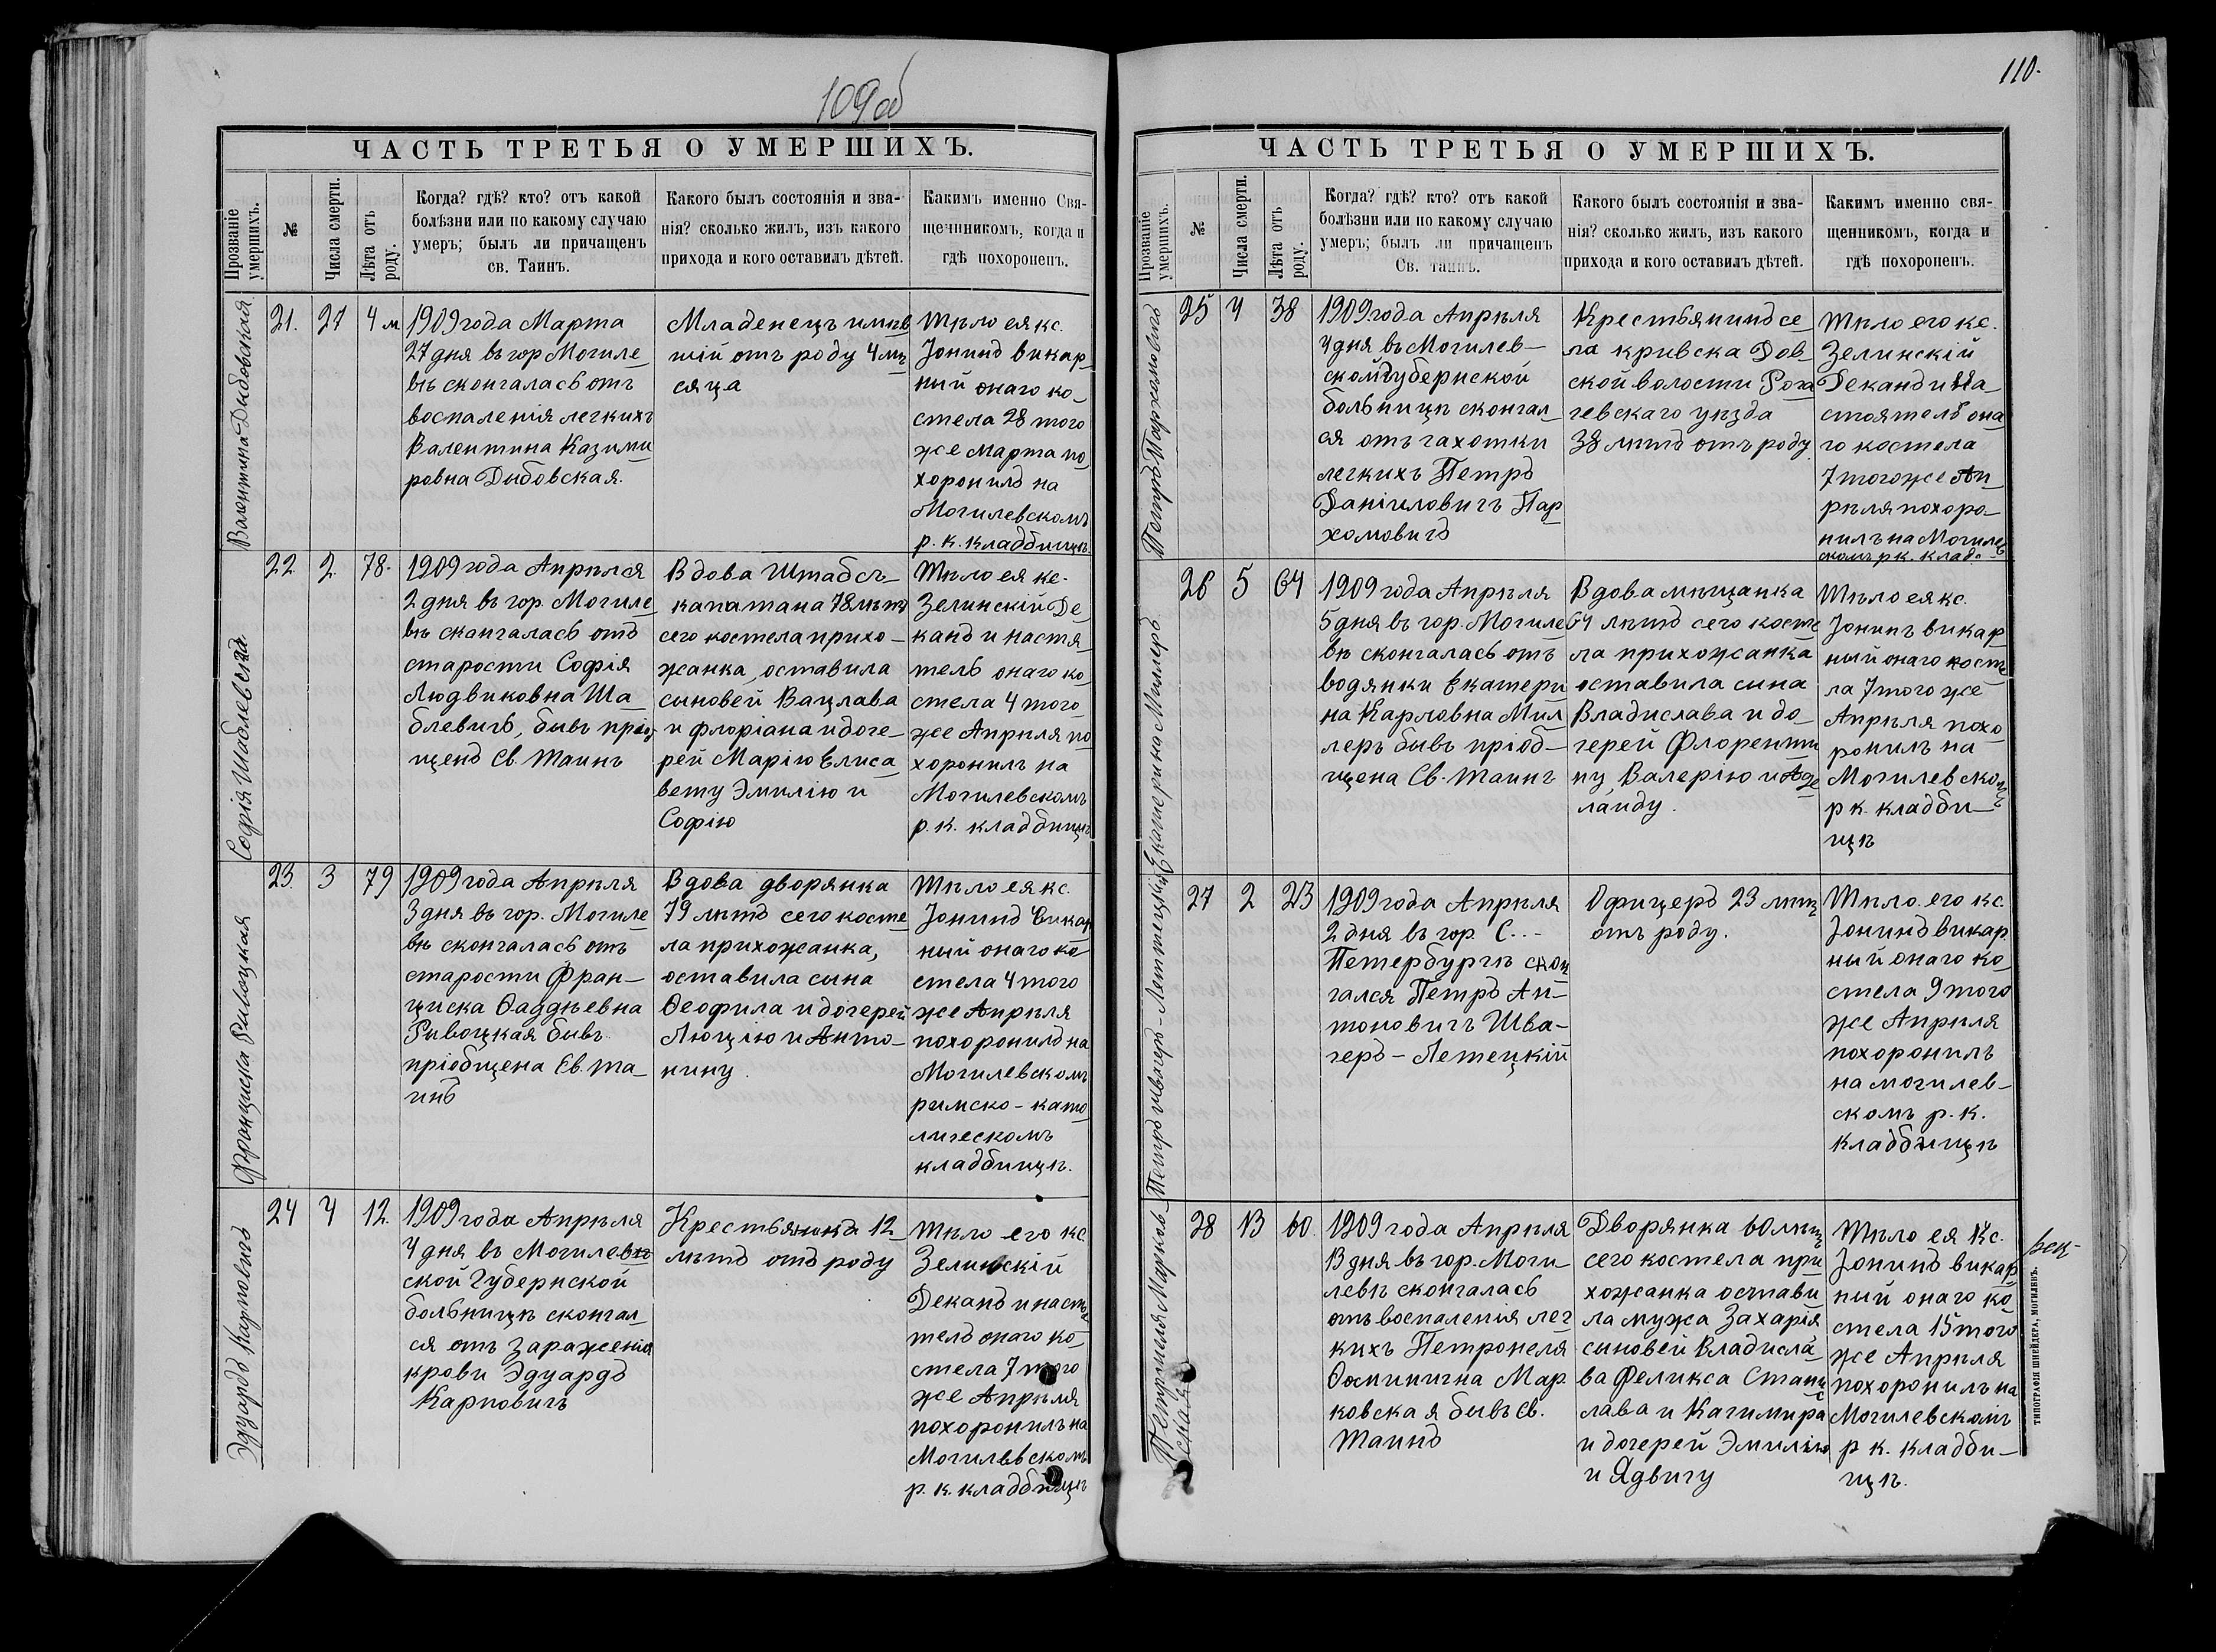 109об
ЧАСТЬ ТРЕТЬЯ О УМЕРШИХЪ.
Прозваніе умершихъ.
№
Числа смерти.
Лѣта отъ роду.
Когда? гдѣ? кто? отъ какой
болѣзни или по какому случаю
умеръ; былъ ли причащенъ
св. Таинъ.
Какого былъ состоянія и зва-
нія? сколько жилъ, изъ какого
прихода и кого оставилъ дѣтей.
Какимъ именно Свя-
щенникомъ, когда и
гдѣ похороненъ.
Валентина Дыбовская
21.
27
4 м
1909 года Марта
27 дня въ гор Могиле
вѣ скончалась отъ
воспаленія легкихъ
Валентина Казими
ровна Дыбовская.
Младенецъ имѣв
шій отъ роду 4 мѣ
сяца
Тѣло ея кс.
Іонинъ викар
ный онаго ко-
стела 28 того
же Марта по
хоронилъ на
Могилевскомъ
р. к. кладбищѣ
Софія Шаблевская
22
2
78.
1909 года Апрѣля
2 дня въ гор. Могиле
вѣ скончалась отъ
старости Софія
Людвиковна Ша
блевичъ, бывъ пріоб
щенъ Св. Таинъ
Вдова Штабсъ-
капатана 78 лѣтъ
сего костела прихо-
жанка, оставила
сыновей Вацлава
и Флоріана и доче-
рей Марію Елиса
вету Эмилію и
Софію
Тѣло ея кс.
Зелинскій Де
канъ и настя
тель онаго ко
стела 4 того
же Апрѣля по
хоронилъ на
Могилевскомъ
р. к. кладбищѣ
Франциска Ривоцкая
23.
3
79
1909 года Апрѣля
3 дня въ гор. Могиле
вѣ скончалась отъ
старости Фран-
циска Ѳаддѣевна
Ривоцкая бывъ
пріобщена Св. Та-
инъ
Вдова дворянка
79 лѣтъ сего косте
ла прихожанка,
оставила сына
Ѳеофила и дочерей
Люцію и Анто-
нину.
Тѣло ея кс.
Іонинъ викар
ный онаго ко
стела 4 того
же Апрѣля
похоронилъ на
Могилевскомъ
римско-като
лическомъ
кладбищѣ.
Эдуардъ Карповичъ
24
4
12.
1909 года Апрѣля
4 дня въ Могилев
ской Губернской
больницѣ скончал
ся отъ зараженія
крови Эдуардъ
Карповичъ
12
лѣтъ отъ роду
Тѣло его кс
Зелинскій
Деканъ и настоя
тель онаго ко-
стела 7 того
же Апрѣля
похоронилъ на
Могилевскомъ
р. к. кладбищѣ
110.
ЧАСТЬ ТРЕТЬЯ О УМЕРШИХЪ.
Прозваніе умершихъ.
№
Числа смерти.
Лѣта отъ роду.
Когда? гдѣ? кто? отъ какой
болѣзни или по какому случаю
умеръ; былъ ли причащенъ
Св. таинъ.
Какого былъ состоянія и зва-
нія? сколько жилъ, изъ какого
прихода и кого оставилъ дѣтей.
Какимъ именно свя-
щенникомъ, когда и
гдѣ похороненъ.
Петръ Пархомовичъ
25
4
38
1909 года Апрѣля
4 дня въ Могилев-
ской губернской
больницѣ скончал-
ся отъ чахотки
легкихъ Петръ
Даніиловичъ Пар
хомовичъ
Крестьянинъ се
ла кривска Дов-
ской волости Рога
чевскаго уѣзда
38 лѣтъ отъ роду
Тѣло его кс.
Зелинскій
Деканъ и На
стоятель она
го костела
7 того же Ап
рѣля похоро-
нилъ на Могилев
скомъ р к. клад.
Екатерина Миллеръ
26
5
64
1909 года Апрѣля
5 дня въ гор. Могиле
вѣ скончалась отъ
водянки Екатери
на Карловна Мил
леръ бывъ пріоб-
щена Св. Таинъ
Вдова мѣщанка
64 лѣтъ сего косте
ла прихожанка
оставила сына
Владислава и до-
черей Флоренти
ну, Валерію и Аде
лаиду.
Тѣло ея кс.
Іонинъ викар
ный онаго косте
ла 7 того же
Апрѣля похо
ронилъ на
Могилевскомъ
р к. кладби-
щѣ
Петръ Швагеръ-Летецкій
27
2
23
1909 года Апрѣля
2 дня въ гор. С.-
Петербургѣ скон
чался Петръ Ан-
тоновичъ Шва-
геръ-Летецкій
Офицеръ 23 лѣтъ
отъ роду.
Тѣло его кс.
Іонинъ викар
ный онаго ко
стела 9 того
же Апрѣля
похоронилъ
на могилев-
скомъ р. к.
кладбищѣ
28
13
60.
1909 года Апрѣля
13 дня въ гор. Моги-
левѣ скончалась
отъ воспаленія лег
кихъ Петронеля
Мар
ковская бывъ Св.
Таинъ
Дворянка 60 лѣтъ
сего костела при
хожанка остави
ла мужа Захарія
сыновей Владисла
ва Феликса Станис
лава и Казимира
и дочерей Эмилію
и Ядвигу
Тѣло ея Кс.
Іонинъ викар
ный онаго ко
стела 15 того
же Апрѣля
похоронилъ на
Могилевскомъ
р к. кладби-
щѣ.
ТИПОГРАФІЯ ШНЕЙДЕРА, МОГИЛЕВЪ.